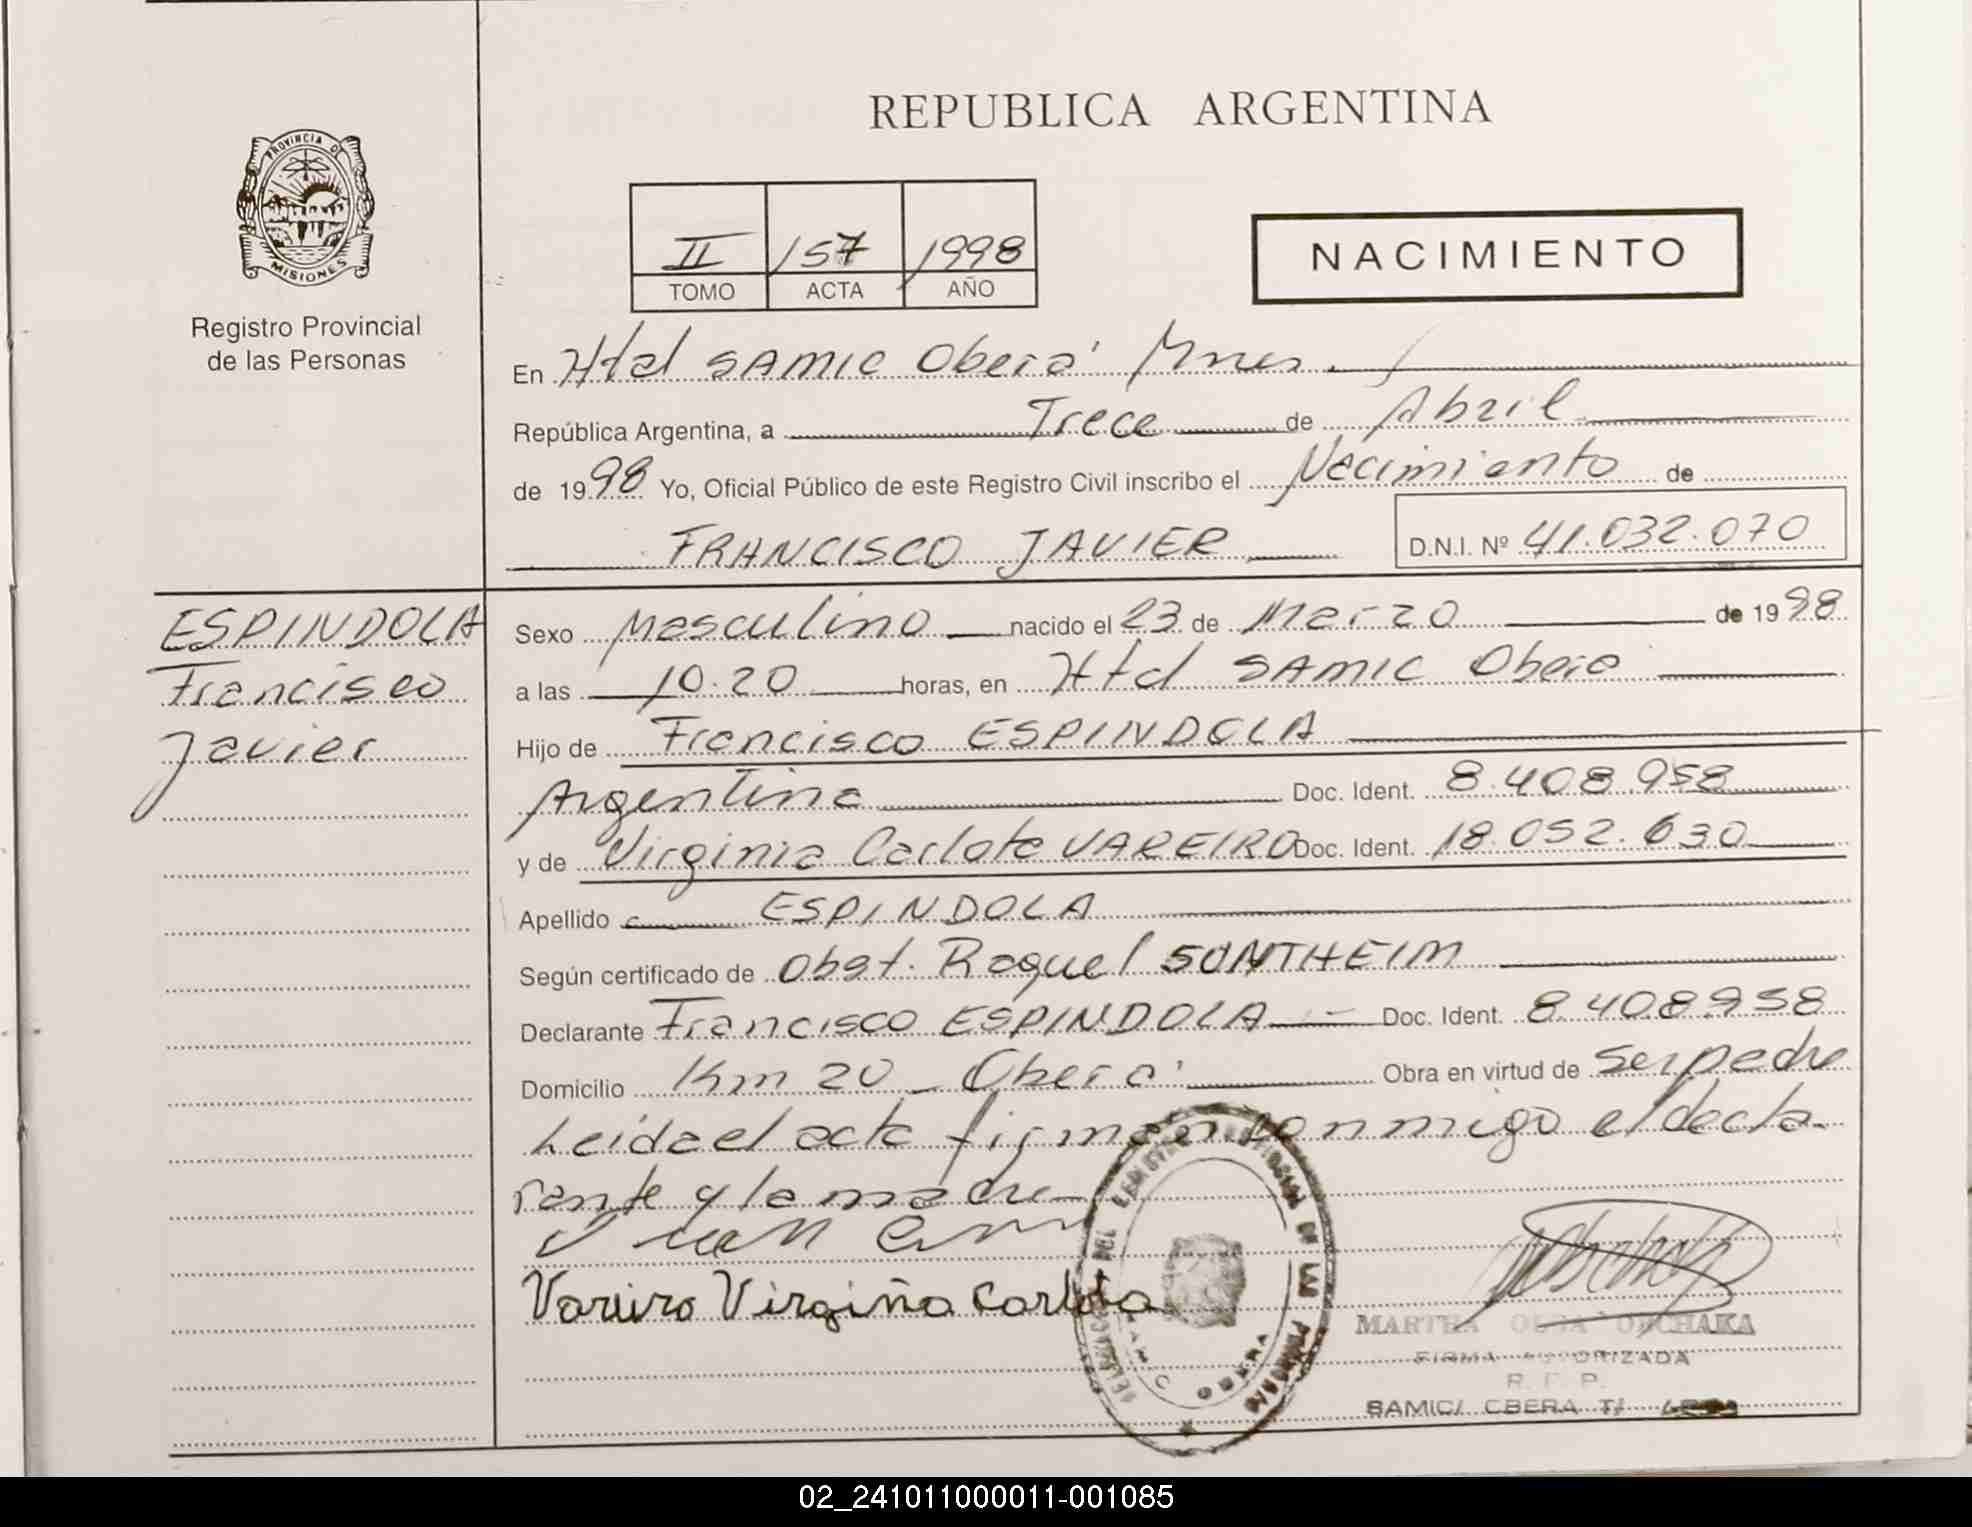 REPUBLICA ARGENTINA
PROVINCIA DE
MISIONES
Registro Provincial
de las Personas
II 157 1998
TOMO ACTA AÑO
NACIMIENTO
En Htal SAMIC Oberá Mnes.
República Argentina, a Trece de Abril
de 1998 Yo, Oficial Público de este Registro Civil inscribo el Nacimiento de
FRANCISCO JAVIER D.N.I. Nº 41.032.070
ESPINDOLA
Francisco
Javier
Sexo Masculino nacido el 23 de Marzo de 1998
a las 10.20 horas, en Htal SAMIC Obera
Hijo de Francisco ESPINDOLA
Argentina Doc. Ident. 8.408.958
y de Virginia Carlota VAREIRO Doc. Ident. 18.052.630
Apellido ESPINDOLA
Según certificado de Obst. Raquel SONTHEIM
Declarante Francisco ESPINDOLA Doc. Ident. 8.408.958
Domicilio Km 20 - Oberá Obra en virtud de ser padre
Leida el acta firman conmigo el decla-
rante y la madre
Vareiro Virgiña Carlota
MARTHA OLGA
FIRMA AUTORIZADA
R. P.
SAMIC/ OBERA
OBERA
02_241011000011-001085